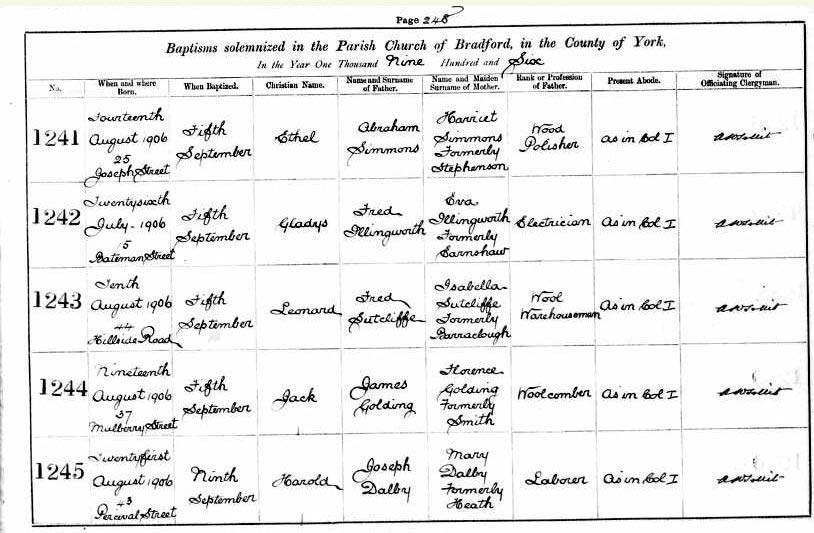 Page 248
Baptisms solemnized in the Parish Church of Bradford, in the County of York,
In the Year One Thousand Nine Hundred and Six
No. When and where Born. When Baptized. Christian Name. Name and Surname of Father. Name and Maiden Surname of Mother. Rank or Profession of Father. Present Abode. Signature of Officiating Clergyman.
1241 Fourteenth August 1906 25 Joseph Street Fifth September Ethel Abraham Simmons Harriet Simmons Formerly Stephenson Wood Polisher As in Col I
1242 Twentysixth July 1906 15 Bateman Street Fifth September Gladys Fred Illingworth Eva Illingworth Formerly Earnshaw Electrician As in Col I
1243 Tenth August 1906 44 Hillside Road Fifth September Leonard Fred Sutcliffe Isabella Sutcliffe Formerly Barraclough Wool Warehouseman As in Col I
1244 Nineteenth August 1906 37 Mulberry Street Fifth September Jack James Golding Florence Golding Formerly Smith Woolcomber As in Col I
1245 Twentyfirst August 1906 43 Percival Street Ninth September Harold Joseph Dalby Mary Dalby Formerly Heath Laborer As in Col I